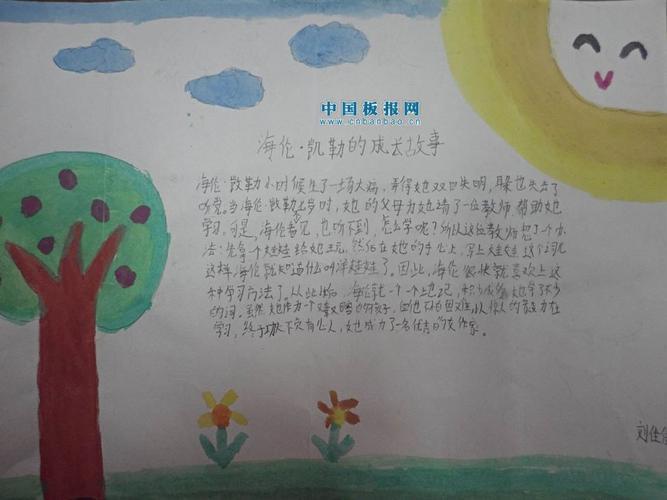 中国板报网
www.cnbanbao.cn
海伦·凯勒的成长故事
海伦·凯勒小时候生了一场大病,弄得她双目失明,躲也失去了
听觉。当海伦·凯勒七岁时,她的父母为她请了一位教师 帮助她
学习。可是,海伦看不见,也听不到,怎么学呢?所以这位教师想了一个办
法:先拿一个娃娃给她玩,然后在她的手心上,写上娃娃 这个词儿
这样,海伦就知道什么叫洋娃娃了,因此,海伦 很快就喜欢上这
种学习方法了。从此以后,海伦就一个一个地记,她学了不少
的词。虽然她作为一个孩子,但她不怕困难,以惊人的毅力在
学习,终于功夫不负有心人,她成为了一名优秀的女作家。
刘佳